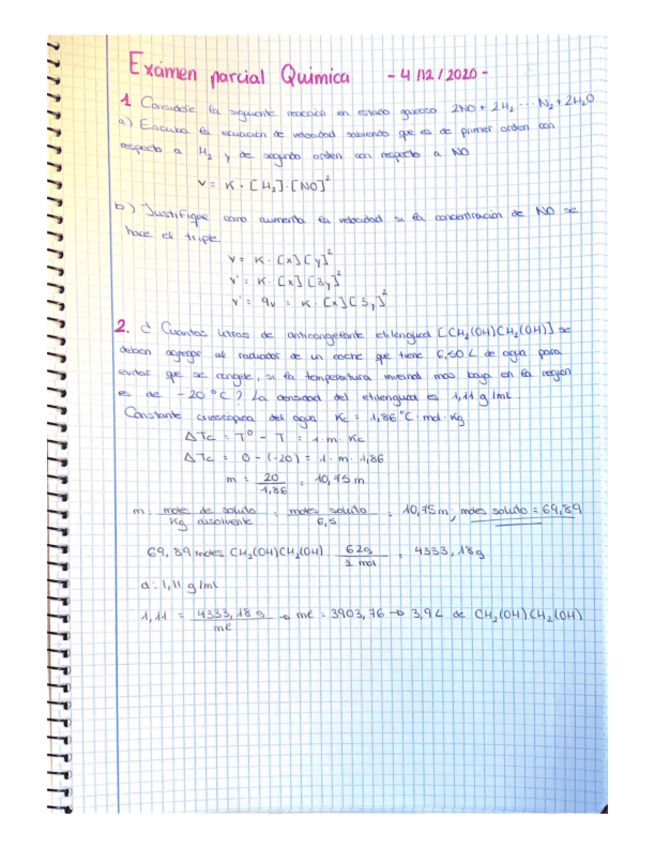 Exámen parcial Química - 4/12/2020 -
1 Considere la siguiente reacción en estado gaseoso 2NO + 2H₂ ... N₂ + 2H₂O
a) Escriba la ecuación de velocidad sabiendo que es de primer orden con
respecto a H₂ y de segundo orden con respecto a NO
V = K · [H₂] · [NO]²
b) Justifique como aumenta la velocidad si la concentración de NO se
hace el triple.
V = K · [x][y]²
V' = K · [x][3y]²
V' = 9v = K · [x][3y]²
2. ¿ Cuantos litros de anticongelante etilenglicol [CH₂(OH)CH₂(OH)] se
deben agregar al radiador de un coche que tiene 6,50 L de agua para
evitar que se congele, si la temperatura invernal más baja en la región
es de -20 °C? La densidad del etilenglicol es 1,11 g/mL.
Constante crioscópica del agua Kc = 1,86 °C · mol · Kg
ΔTc = Tº - T = 1 · m · Kc
ΔTc = 0 - (-20) = 1 · m · 1,86
m = 20 / 1,86 = 10,75 m
m = moles de soluto / Kg disolvente = moles soluto / 6,5 = 10,75 m; moles soluto = 69,89
69,89 moles CH₂(OH)CH₂(OH) 62g / 1 mol = 4333,18 g
d = 1,11 g/mL
1,11 = 4333,18 g / ml → ml = 3903,76 → 3,9 L de CH₂(OH)CH₂(OH)